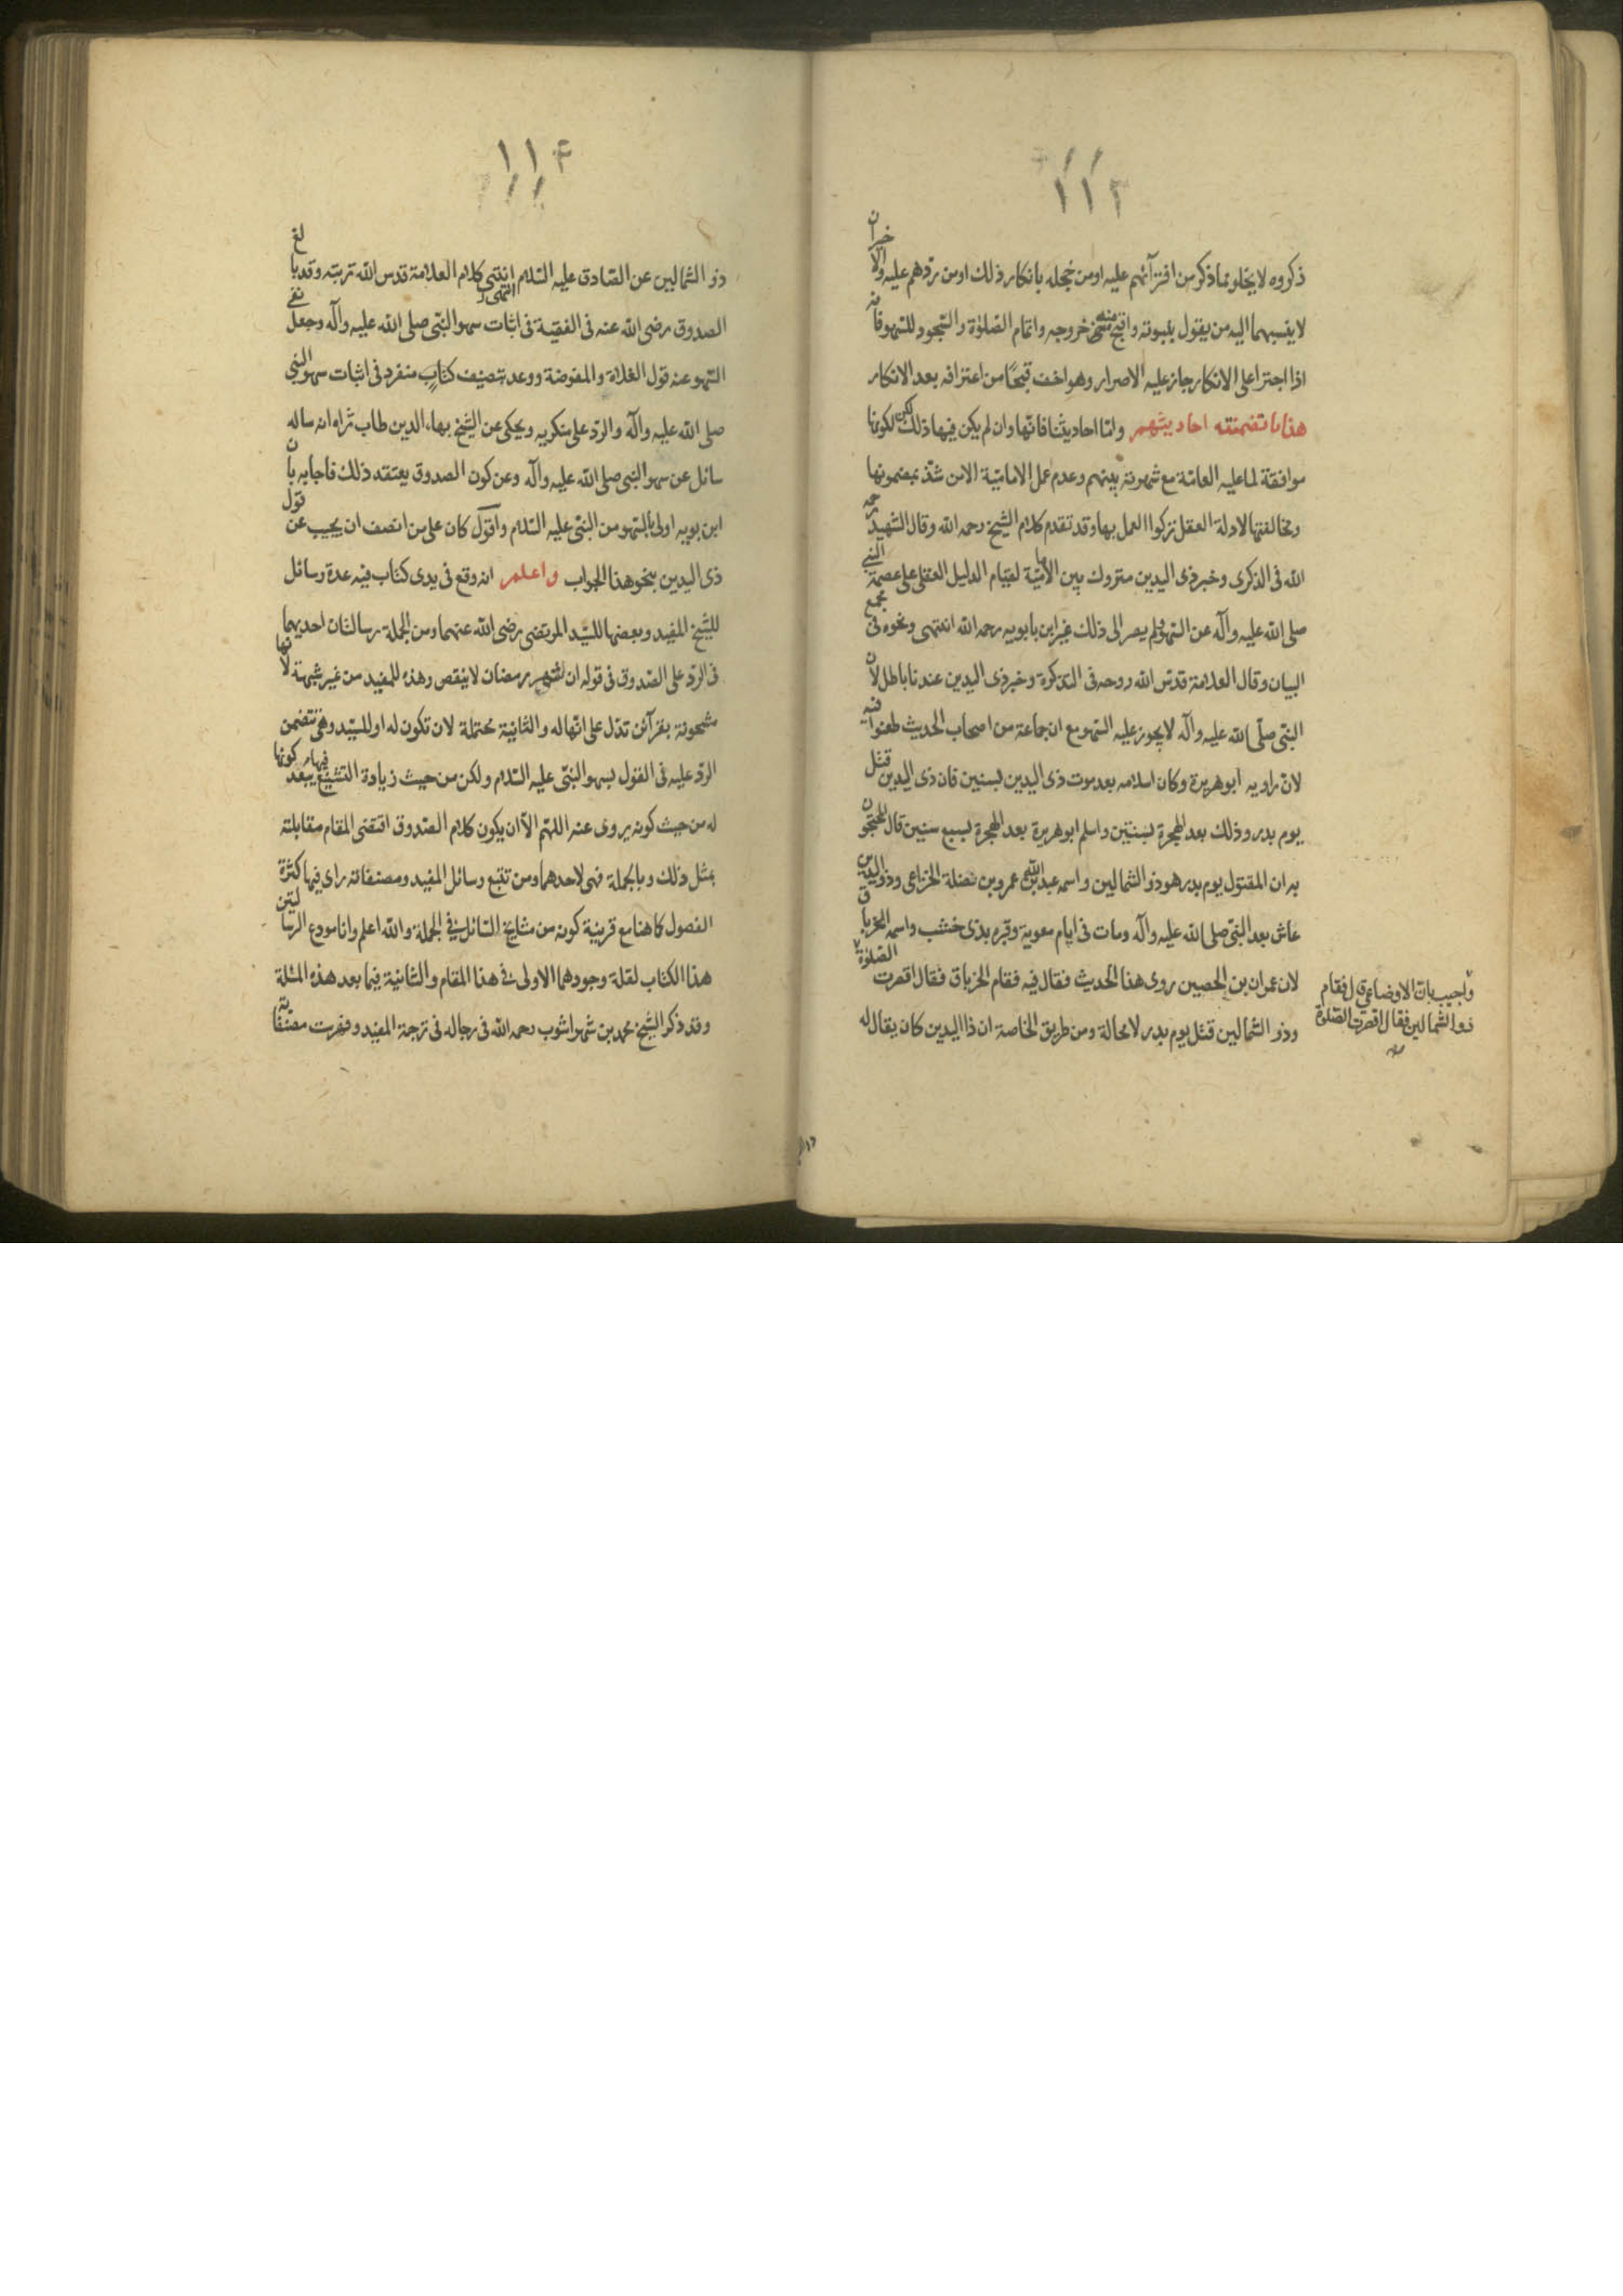 ١١٣
ذكروه لا يخلو مما ذكر من افترآئهم عليه او من خجله بانكار ذلك او من ردهم عليه والاخران
لا ينسبهما اليه من يقول بثبوته واقبح منه خروجه واتمام الصلوة والسجود للسهو فانه
اذا اجترا على الانكار جاز عليه الاصرار وهو اخف قبحًا من اعترافه بعد الانكار
هذا ما تضمنته احاديثهم وامّا احاديثنا فانّها وان لم يكن فيها ذلك لكن لكونها
موافقة لما عليه العامّة مع شهرته بينهم وعدم عمل الاماميّة الا من شذّ بمضمونها
ومخالفتها لادلة العقل تركوا العمل بها وقد تقدم كلام الشيخ رحمه الله وقال الشهيد رحمه
الله فى الذكرى وخبر ذى اليدين متروك بين الاماميّة لقيام الدليل العقلى على عصمة النبى
صلى الله عليه وآله عن السهو ولم يصر الى ذلك غير ابن بابويه رحمه الله انتهى ونحوه فى مجمع
البيان وقال العلامة قدّس الله روحه فى التذكرة وخبر ذى اليدين عندنا باطل لان
النبّى صلّى الله عليه وآله لا يجوز عليه السهو مع ان جماعة من اصحاب الحديث طعنوا فيه
لانّ راويه ابو هريرة وكان اسلامه بعد موت ذى اليدين بسنين فان ذى اليدين قتل
يوم بدر وذلك بعد الهجرة بسنتين واسلم ابو هريرة بعد الهجرة بسبع سنين قال المحتجون
به ان المقتول يوم بدر هو ذو الشمالين واسمه عبد الله بن عمرو بن نضلة الخزاعى وذو اليدين
عاش بعد النبّى صلى الله عليه وآله ومات فى ايام معوية وقبره بذى خشب واسمه الخرباق
لان عمران بن الحصين روى هذا الحديث فقال فيه فقام الخرباق فقال اقصرت الصلوة
وذو الشمالين قتل يوم بدر لا محالة ومن طريق الخاصة ان ذا اليدين كان يقال له
واجيب بانّ الاوضاعى قال فقام
ذو الشمالين فقال اقصرت الصلوة
١١۴
ذو الشمالين عن الصّادق عليه السّلام انتهى كلام العلامة قدس الله تربته وقد بالغ
الصدوق رضى الله عنه فى الفقيه فى اثبات سهو النبّى صلى الله عليه وآله وجعل نفى
السّهو عنه قول الغلاة والمفوضة ووعد بتصنيف كتابٍ منفرد فى اثبات سهو النبى
صلى الله عليه وآله والردّ على منكريه ويحكى عن الشيخ بهاء الدين طاب ثراه انه ساله
سائل عن سهو النبى صلى الله عليه وآله وعن كون الصدوق يعتقد ذلك فاجابه بان
ابن بويه اولى بالسّهو من النبّى عليه السّلام واقول كان على من انصف ان يجيب عن قول
ذى اليدين بنحو هذا الجواب واعلم انه وقع فى يدى كتاب فيه عدة رسائل
للشيخ المفيد وبعضها للسّيد المرتضى رضى الله عنهما ومن الجملة رسالتان احديهما
فى الردّ على الصّدوق فى قوله ان شهر رمضان لا ينقص وهذه للمفيد من غير شبهة لانها
مشحونة بقرآئن تدّل على انّها له والثانية محتملة لان تكون له او للسّيد وهى تتضمن
الردّ عليه فى القول بسهو النبّى عليه السّلام ولكن من حيث زيادة التشنيع فيها يبعد كونها
له من حيث كونه يروى عنه اللهّم الّا ان يكون كلام الصّدوق اقتضى المقام مقابلته
بمثل ذلك وبالجملة فهى لاحدهما ومن تتبّع رسائل المفيد ومصنفاته راى فيها كثرة
الفصول كما هنا مع قرينة كونه من مشايخ السّائل فى الجملة والله اعلم وانا مودع الرسالتين
هذا الكتاب لقلة وجودهما الاولى فى هذا المقام والثانية فيما بعد هذه المسئلة
وقد ذكر الشيخ محمد بن شهراشوب رحمه الله فى رجاله فى ترجمة المفيد وفهرست مصّنفاته